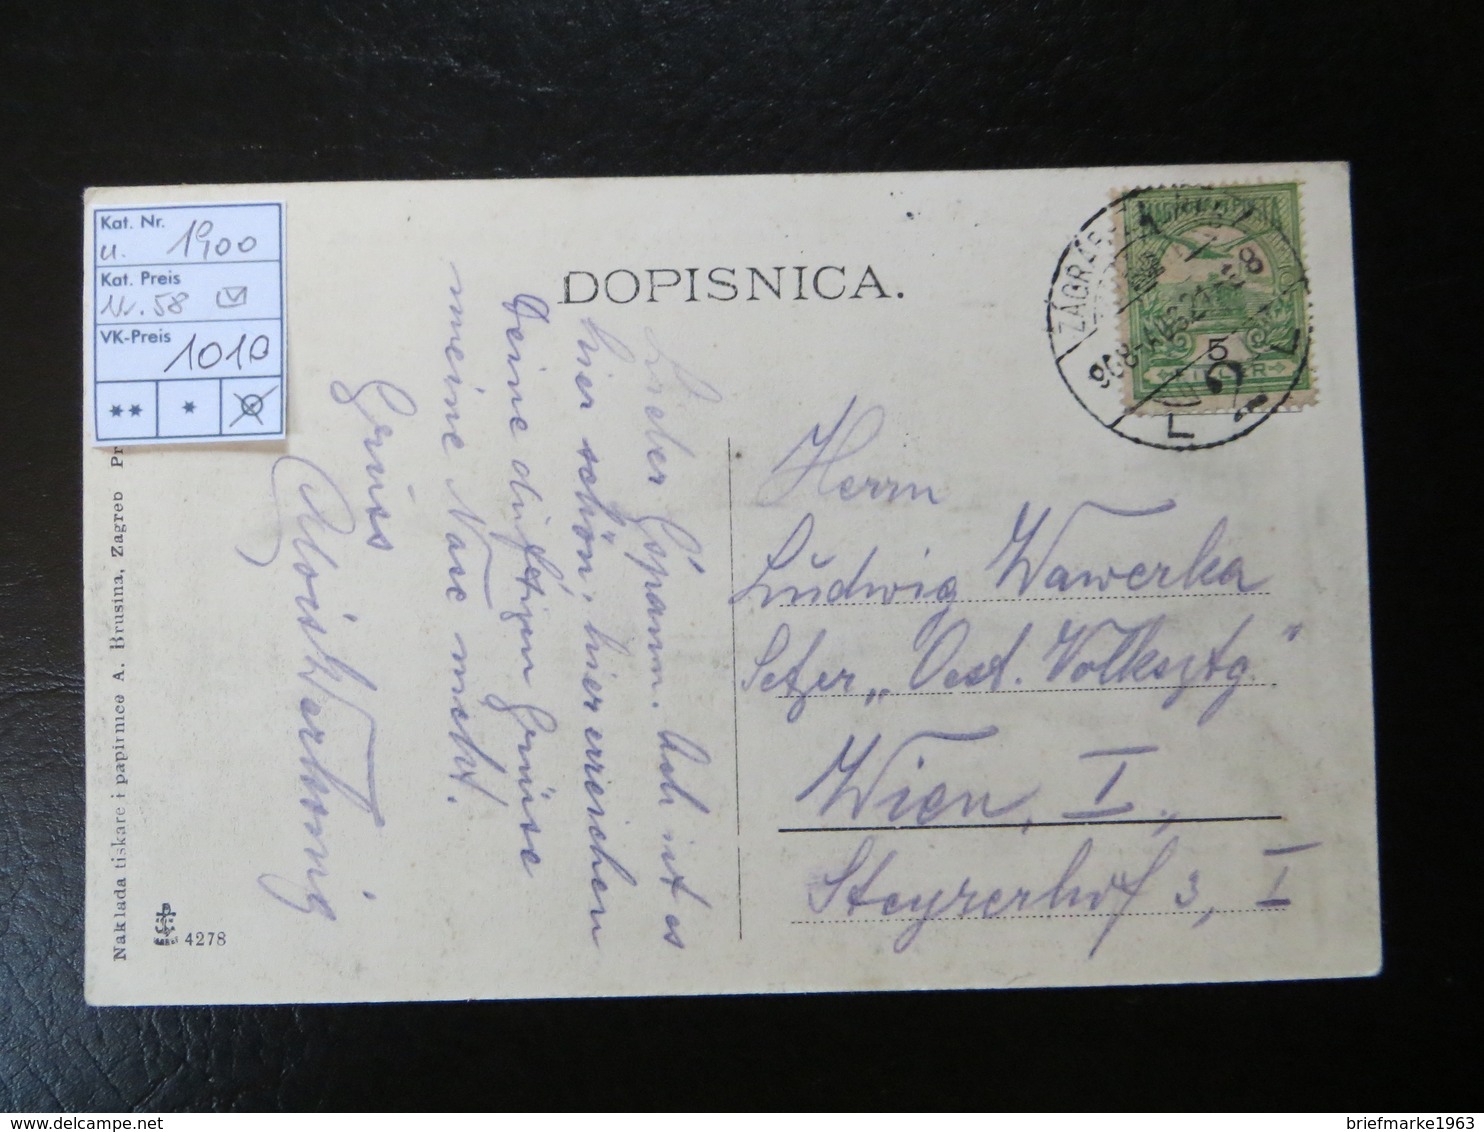 Kat. Nr.
u. 1900
Kat. Preis
Nr. 58
VK-Preis
1010
** *
DOPISNICA.
MAGYAR KIR. POSTA
5
FILLÉR
ZÁGRÁB
908
Lieber Gspann. Ach ist es
hier schön, hier erreichen
Deine duftigen Grüsse
meine Nase nicht.
Gruss
Alois
Herrn
Ludwig Wawerka
Setzer „Oest. Volksztg."
Wien, I.,
Steyrerhof 3, I
Naklada tiskare i papirnice A. Brusina, Zagreb
4278
briefmarke1963